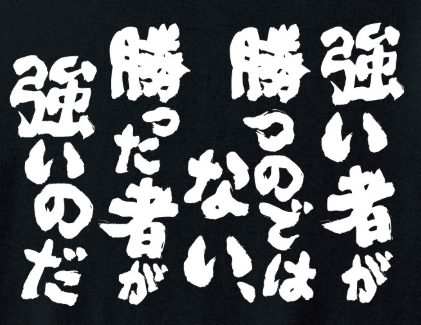 強い者が
勝つのでは
ない、
勝った者が
強いのだ